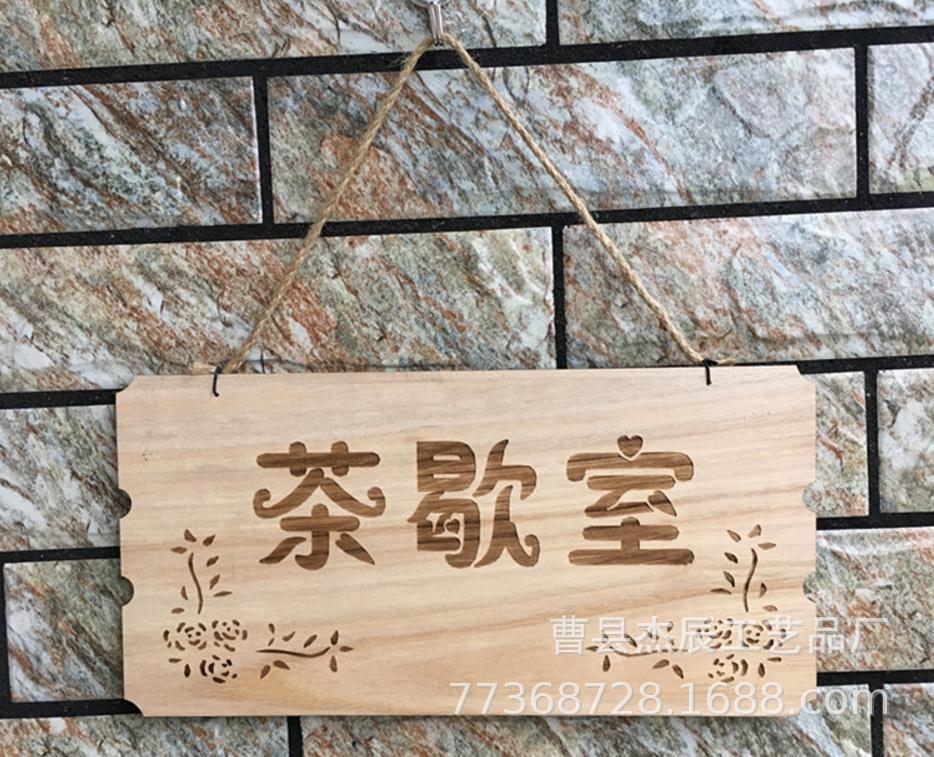 茶歇室
曹县杰辰工艺品厂
77368728.1688.com